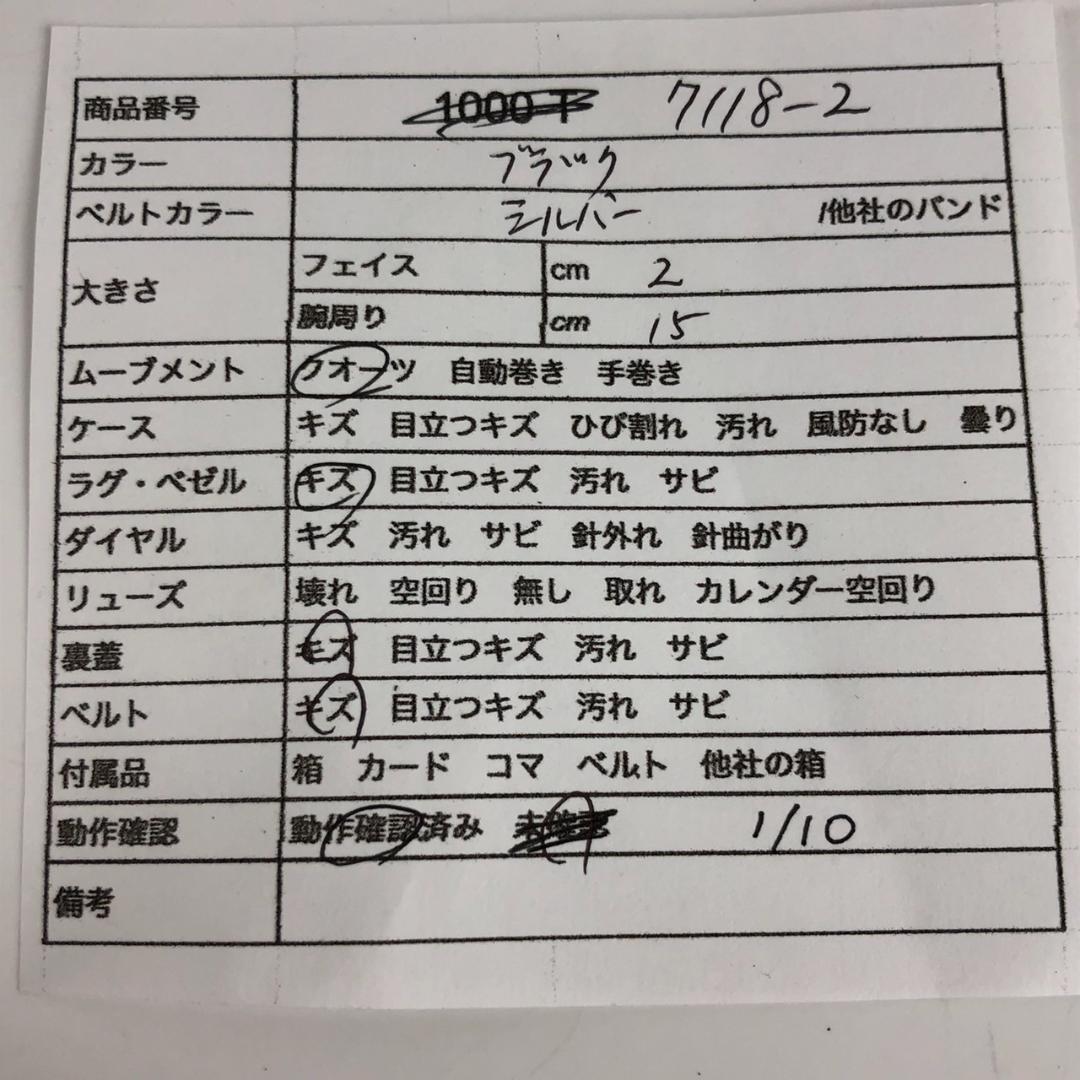 商品番号 1000 T 7118-2
カラー ブラック
ベルトカラー シルバー /他社のバンド
大きさ フェイス cm 2
腕周り cm 15
ムーブメント クオーツ 自動巻き 手巻き
ケース キズ 目立つキズ ひび割れ 汚れ 風防なし 曇り
ラグ・ベゼル キズ 目立つキズ 汚れ サビ
ダイヤル キズ 汚れ サビ 針外れ 針曲がり
リューズ 壊れ 空回り 無し 取れ カレンダー空回り
裏蓋 キズ 目立つキズ 汚れ サビ
ベルト キズ 目立つキズ 汚れ サビ
付属品 箱 カード コマ ベルト 他社の箱
動作確認 動作確認済み 未確認 1/10
備考